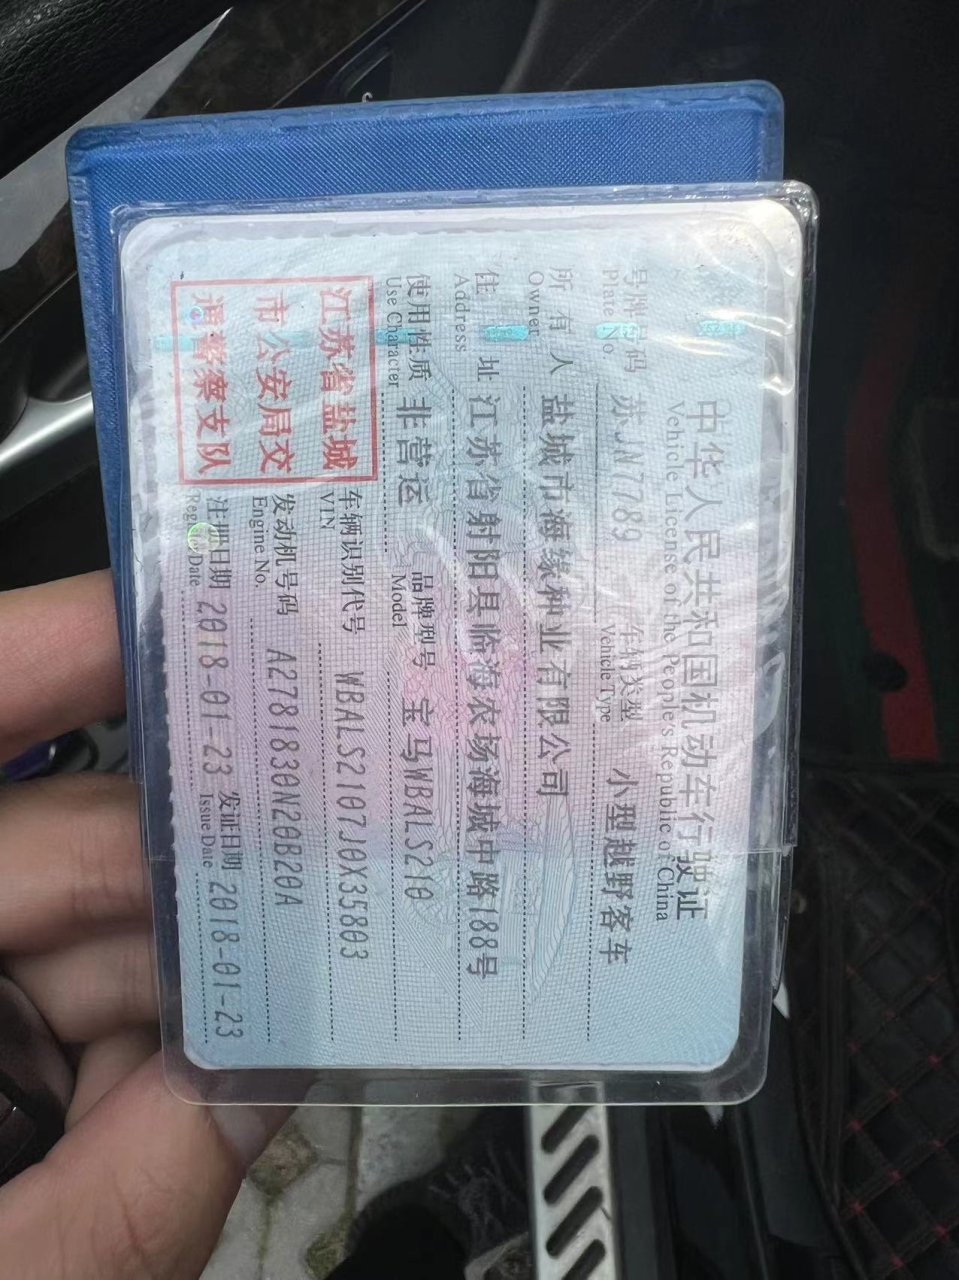 中华人民共和国机动车行驶证
Vehicle License of the People's Republic of China
号牌号码 苏JN7789 车辆类型 小型越野客车
Plate No. Vehicle Type
所有人 盐城市海缘种业有限公司
Owner
住址 江苏省射阳县临海农场海城中路188号
Address
使用性质 非营运 品牌型号 宝马WBALS210
Use Character Model
江苏省盐城
市公安局交
通警察支队
车辆识别代号 WBALS2107J0X35803
VIN
发动机号码 A2781830N20B20A
Engine No.
注册日期 2018-01-23 发证日期 2018-01-23
Register Date Issue Date